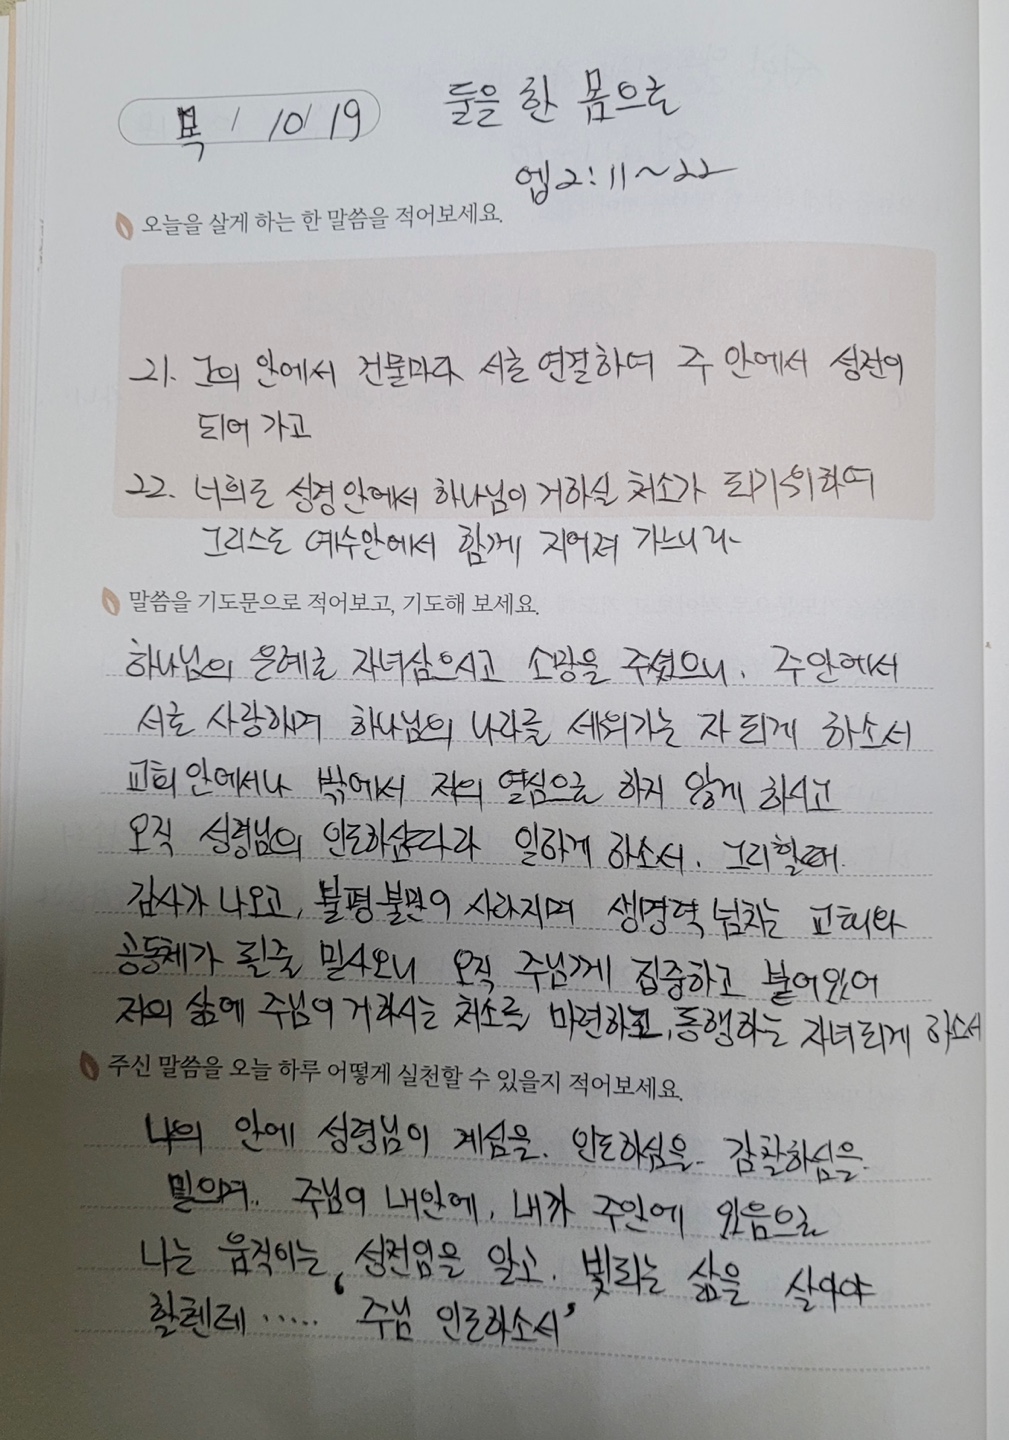 목 / 10/ 19
둘을 한 몸으로
엡2:11~22
오늘을 살게 하는 한 말씀을 적어보세요.
21. 그의 안에서 건물마다 서로 연결하여 주 안에서 성전이
되어 가고
22. 너희도 성령안에서 하나님이 거하실 처소가 되기위하여
그리스도 예수안에서 함께 지어져 가느니라
말씀을 기도문으로 적어보고, 기도해 보세요.
하나님의 은혜로 자녀삼으시고 소망을 주셨으니, 주안에서
서로 사랑하며 하나님의 나라를 세워가는 자 되게 하소서
교회 안에서나 밖에서 저의 열심으로 하지 않게 하시고
오직 성령님의 인도하심따라 일하게 하소서. 그리할때
감사가 나오고, 불평불만이 사라지며 생명력 넘치는 교회와
공동체가 될줄 믿사오니 오직 주님께 집중하고 붙어있어
저의 삶에 주님이 거하시는 처소를 마련하고, 동행하는 자녀되게 하소서
주신 말씀을 오늘 하루 어떻게 실천할 수 있을지 적어보세요.
나의 안에 성령님이 계심을. 인도하심을. 감찰하심을.
믿으며.. 주님이 내안에, 내가 주안에 있음으로
나는 움직이는 성전임을 알고. 빛되는 삶을 살아야
할텐데 ..... '주님 인도하소서'